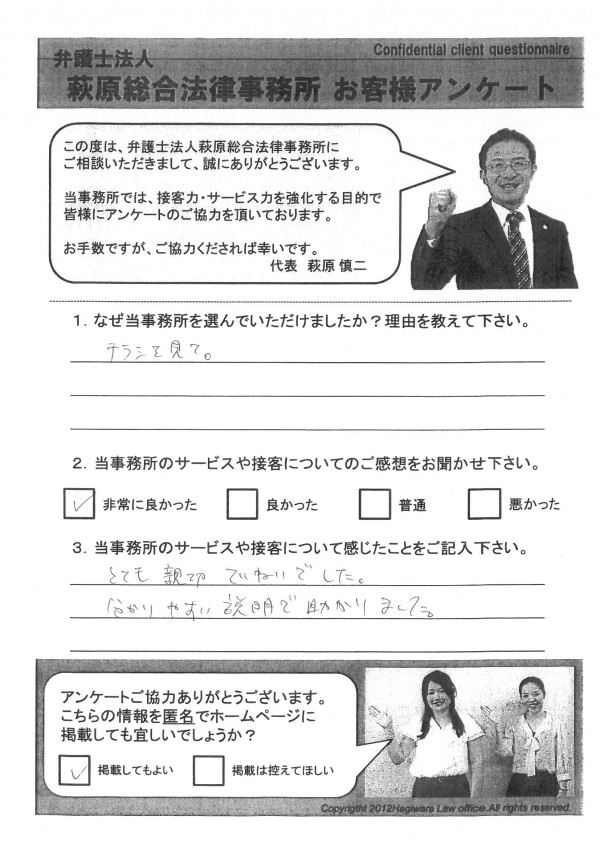 弁護士法人
Confidential client questionnaire
萩原総合法律事務所 お客様アンケート
この度は、弁護士法人萩原総合法律事務所に
ご相談いただきまして、誠にありがとうございます。
当事務所では、接客力・サービス力を強化する目的で
皆様にアンケートのご協力を頂いております。
お手数ですが、ご協力くだされば幸いです。
代表 萩原 慎二
1. なぜ当事務所を選んでいただけましたか？理由を教えて下さい。
チラシを見て。
2. 当事務所のサービスや接客についてのご感想をお聞かせ下さい。
非常に良かった 良かった 普通 悪かった
3. 当事務所のサービスや接客について感じたことをご記入下さい。
とても 親切 ていねいでした。
分かりやすい 説明で 助かりました。
アンケートご協力ありがとうございます。
こちらの情報を匿名でホームページに
掲載しても宜しいでしょうか？
掲載してもよい 掲載は控えてほしい
Copyright 2012Hagiwara Law office.All rights reserved.